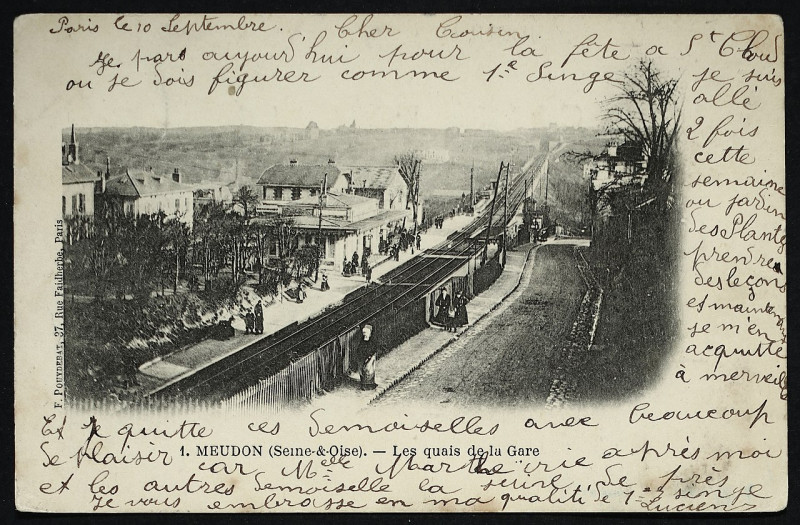 Paris le 10 Septembre. Cher Cousin
Je pars aujourd'hui pour la fête a St Cloud
ou je dois figurer comme 1re Singe
je suis
allé
2 fois
cette
semaine
au jardin
des Plantes
prendre
des leçons
et maintenant
je m'en
acquitte
à merveille
F. POUYDEBAT, 37, Rue Faidherbe, Paris
Et je quitte ces Demoiselles avec beaucoup
1. MEUDON (Seine-&-Oise). — Les quais de la Gare
de plaisir car Melle Marthe crie après moi
et les autres demoiselle la suive de près
Je vous embrasse en ma qualité de 1re singe
Lucien